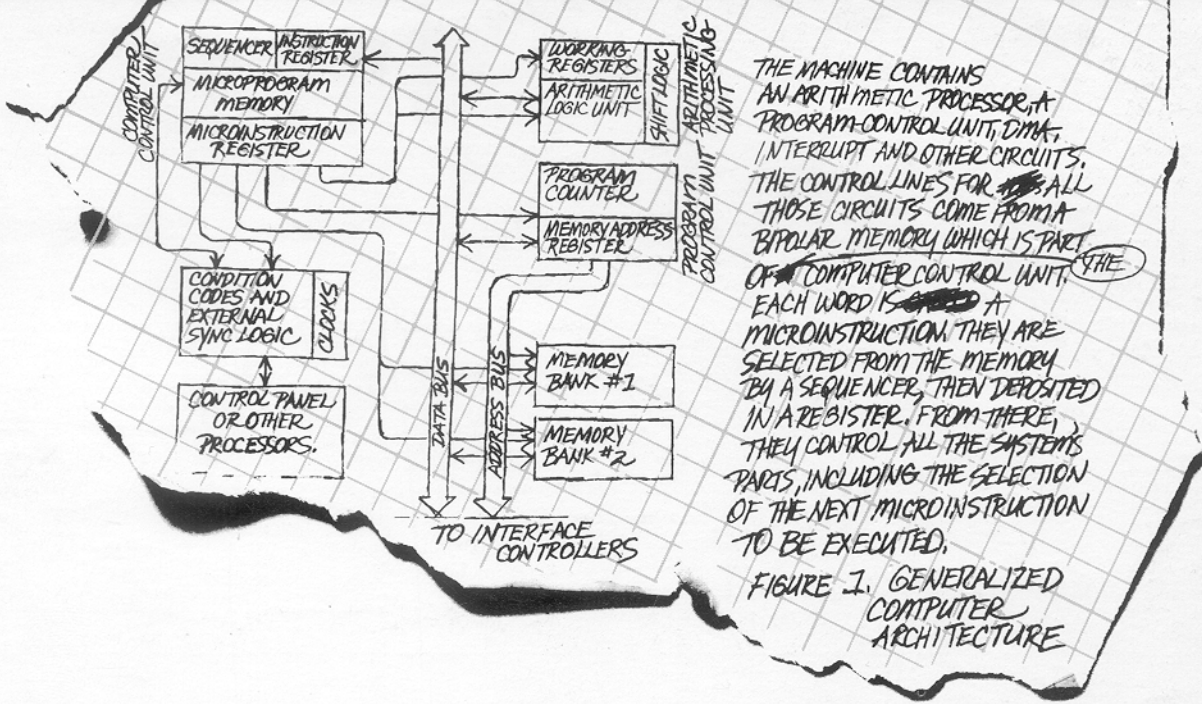 COMPUTER
CONTROL UNIT
SEQUENCER
INSTRUCTION
REGISTER
MICROPROGRAM
MEMORY
MICROINSTRUCTION
REGISTER
CONDITION
CODES AND
EXTERNAL
SYNC LOGIC
CLOCKS
CONTROL PANEL
OR OTHER
PROCESSORS.
DATA BUS
ADDRESS BUS
WORKING
REGISTERS
ARITHMETIC
LOGIC UNIT
SHIFT LOGIC
ARITHMETIC
PROCESSING
UNIT
PROGRAM
COUNTER
MEMORY ADDRESS
REGISTER
PROGRAM
CONTROL UNIT
MEMORY
BANK #1
MEMORY
BANK #2
TO INTERFACE
CONTROLLERS
THE MACHINE CONTAINS
AN ARITHMETIC PROCESSOR, A
PROGRAM-CONTROL UNIT, DMA,
INTERRUPT AND OTHER CIRCUITS.
THE CONTROL LINES FOR ALL
THOSE CIRCUITS COME FROM A
BIPOLAR MEMORY WHICH IS PART
OF THE COMPUTER CONTROL UNIT.
EACH WORD IS A
MICROINSTRUCTION. THEY ARE
SELECTED FROM THE MEMORY
BY A SEQUENCER, THEN DEPOSITED
IN A REGISTER. FROM THERE,
THEY CONTROL ALL THE SYSTEM'S
PARTS, INCLUDING THE SELECTION
OF THE NEXT MICROINSTRUCTION
TO BE EXECUTED.
FIGURE 1. GENERALIZED
COMPUTER
ARCHITECTURE